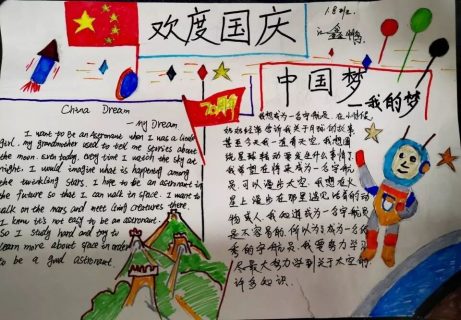 欢度国庆
18班
江鑫鹏
China Dream
—my Dream
I want to be an Astronaut when I was a little
girl, my grandmother used to tell me stories about
the moon. Even today, every time I watch the sky at
night. I would imagine what is happening among
the twinkling stars. I hope to be an astronaut in
the future so that I can walk in space. I want to
walk on the mars and meet living creatures there.
I know its not easy to be an astronaut.
so I study hard and try to
learn more about space in order
to be a good astronaut.
中国梦
—我的梦
我想成为一名宇航员。在小时候
奶奶经常告诉我关于月球的故事
甚至今天我一直看天空，我想
是可以漫步太空，我想在火
星上漫步在那里遇见活着的动
物集人。我知道成为一名宇航员
是不容易的，所以为了成为一名优
秀的宇航员，我要努力学习
尽最大努力学到关于太空的
许多知识。